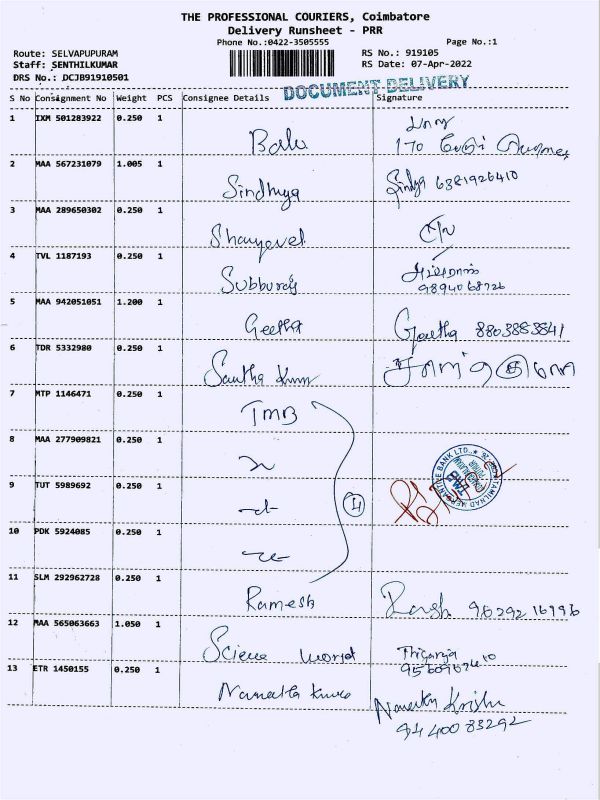 THE PROFESSIONAL COURIERS, Coimbatore
Delivery Runsheet - PRR
Phone No.:0422-3505555
Page No.:1
Route: SELVAPUPURAM
RS No.: 919105
Staff: SENTHILKUMAR
RS Date: 07-Apr-2022
DRS No.: DCJB91910501
DOCUMENT DELIVERY
S No Consignment No Weight PCS Consignee Details Signature
1 IXM 501283922 0.250 1 Balu
170
2 MAA 567231079 1.005 1 Sindhuya 6381926410
3 MAA 289650302 0.250 1
4 TVL 1187193 0.250 1 Subburaj
5 MAA 942051051 1.200 1 Geetha Geetha 8803883841
6 TDR 5332980 0.250 1 Santha Kumar
7 MTP 1146471 0.250 1 TMB
8 MAA 277909821 0.250 1
9 TUT 5989692 0.250 1
TAMILNAD MERCANTILE BANK LTD.,
10 PDK 5924085 0.250 1
11 SLM 292962728 0.250 1 Ramesh
12 MAA 565063663 1.050 1 Science World
13 ETR 1450155 0.250 1
94 400 83292